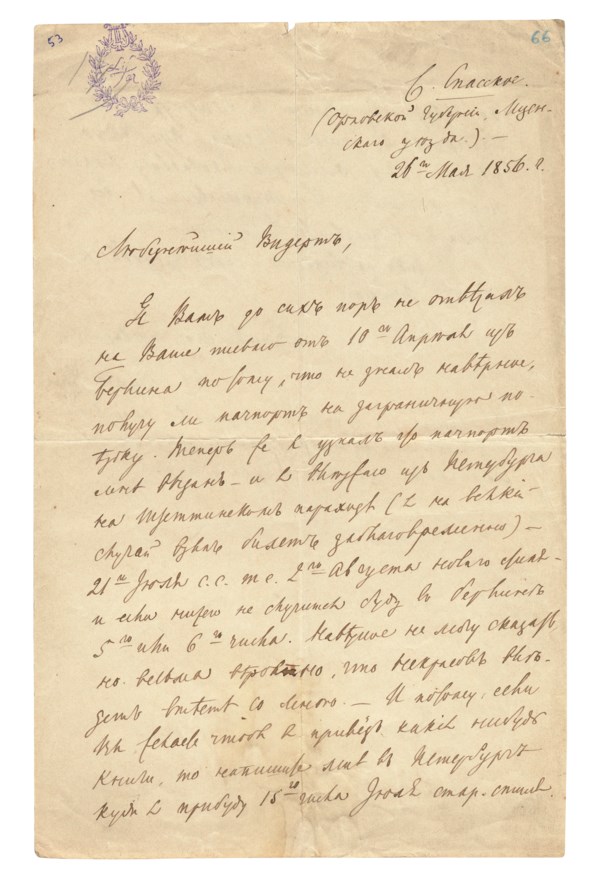 53
66
С. Спасское.
(Орловской Губернiи, Мцен-
скаго уѣзда.). —
26го Мая 1856. г.
Любезнѣйшiй Видертъ,
Я Вамъ до сихъ поръ не отвѣчалъ
на Ваше письмо отъ 10го Апрѣля изъ
Берлина потому, что не зналъ навѣрное,
получу ли пачпортъ на заграничную по-
ѣздку. Теперь же я узналъ что пачпортъ
мнѣ выданъ — и я выѣзжаю изъ Петербурга
на Штеттинскомъ пароходѣ (я на всякiй
случай взялъ билетъ заблаговременно) —
21го Iюля с.с. т.е. 2го Августа новаго стиля —
и если ничего не случится буду въ Берлинѣ
5го или 6го числа. Навѣрное не могу сказать,
но весьма вѣроятно, что Некрасовъ выѣ-
детъ вмѣстѣ со мною. — И потому, если
Вы желаете чтобъ я привёзъ какiя нибудь
книги, то напишите мнѣ въ Петербургъ
куда я прибуду 15го числа Iюля стар. стиля.